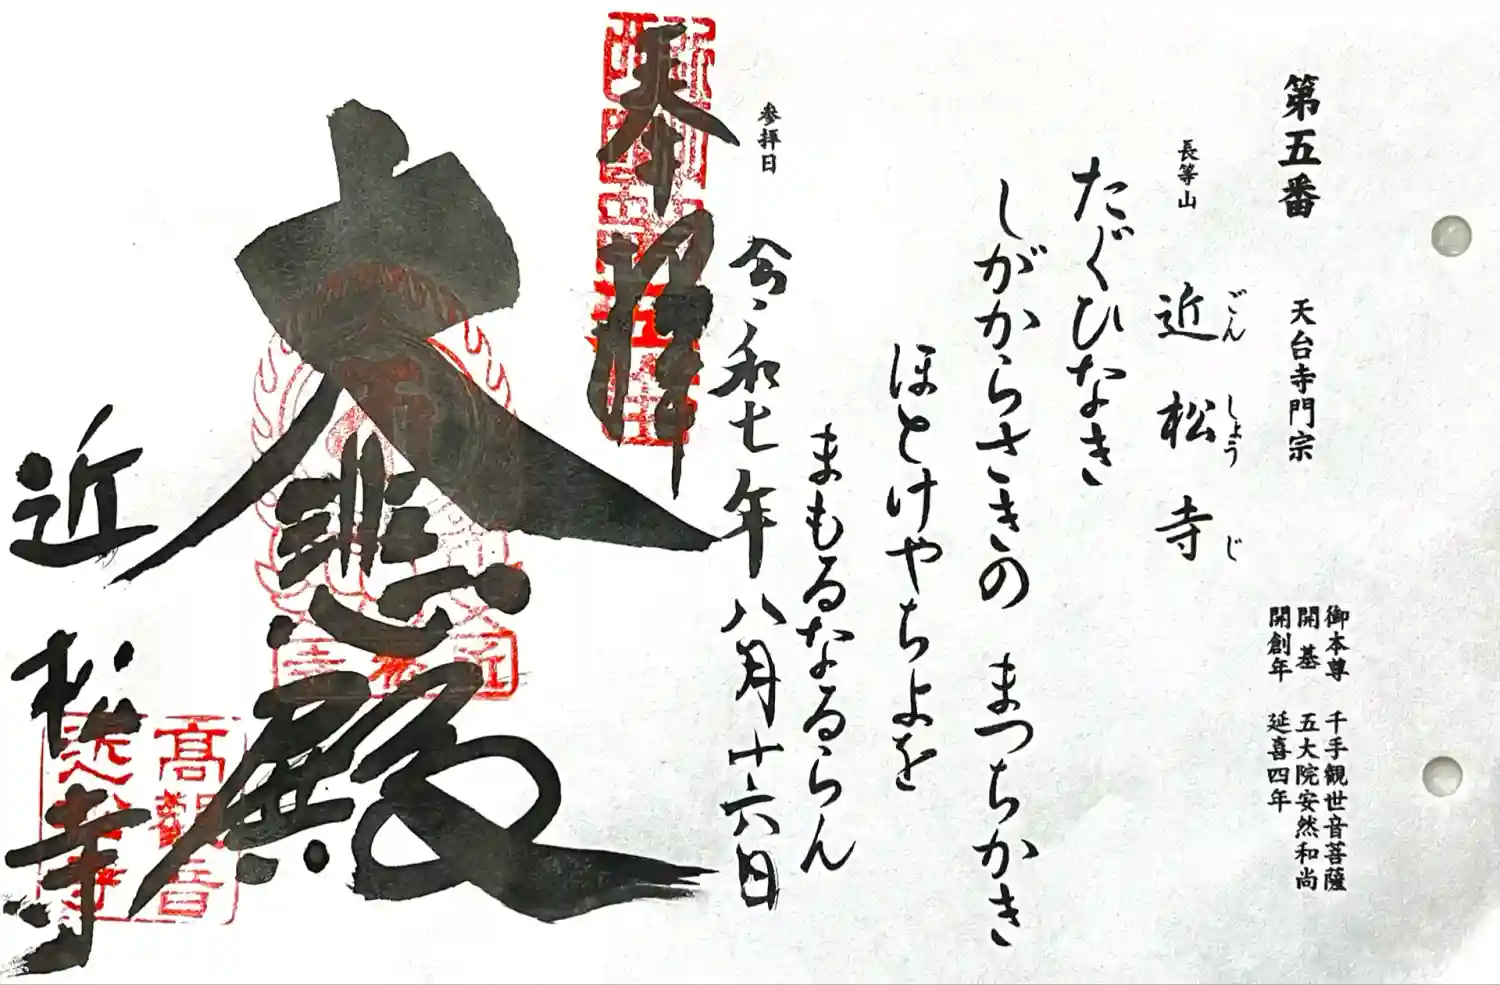 第五番
天台寺門宗
御本尊 千手観世音菩薩
開基 五大院安然和尚
開創年 延喜四年
長等山
近松寺
ごんしょうじ
たぐひなき
しがからさきの まつちかき
ほとけやちよを
まもるなるらん
参拝日
令和七年八月十六日
奉拝
大悲殿
近松寺
高観音
近松寺